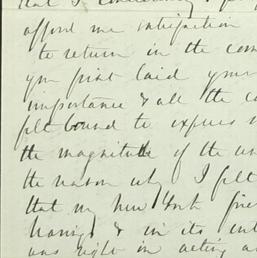 that I
afford me satisfaction
to return in the com
you first laid your
importance & all the c
felt bound to express
the magnitude of the un
the reason why I felt
that my New York frie
& in its ent
was right in acting a